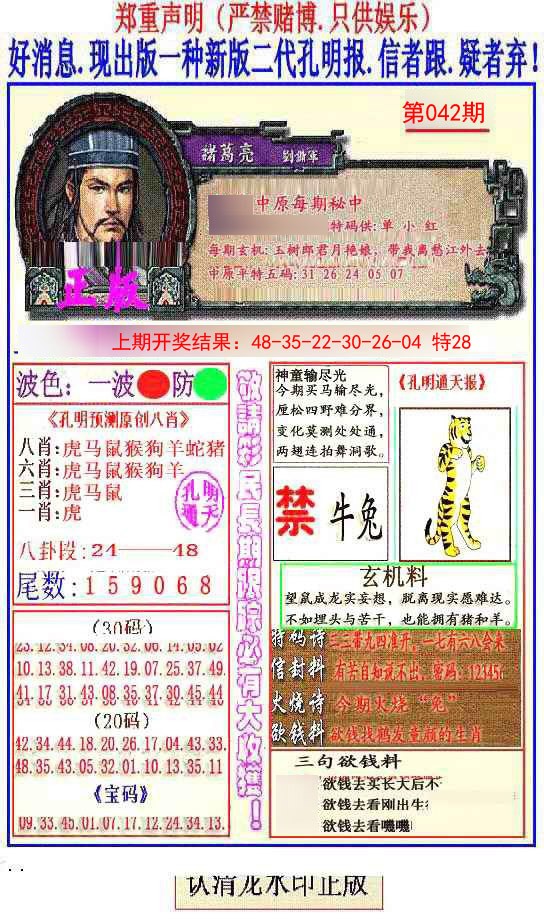 郑重声明（严禁赌博.只供娱乐）
好消息.现出版一种新版二代孔明报.信者跟.疑者弃！
第042期
諸葛亮
中原每期秘中
特码供: 单 小 红
每期玄机: 玉树郎君月艳娘，带我离愁江外去
中原平特五码: 31 26 24 05 07
正版
上期开奖结果：48-35-22-30-26-04 特28
波色：一波 防
《孔明预测原创八肖》
八肖: 虎马鼠猴狗羊蛇猪
六肖: 虎马鼠猴狗羊
三肖: 虎马鼠
一肖: 虎
孔明
通天
八卦段: 24——48
尾数: 1 5 9 0 6 8
(30码)
23.12.34.08.20.32.06.14.05.02
10.13.38.11.42.19.07.25.37.49.
41.17.31.43.08.35.37.30.45.44
(20码)
42.34.44.18.20.26.17.04.43.33.
48.35.43.05.32.01.10.13.35.11
《宝码》
09.33.45.01.07.17.12.24.34.13.
敬請彩民長期跟踪必有大收獲！
神童输尽光
今期买马输尽光，
厘松四野难分界，
变化莫测处处通，
两翅连拍舞洞歌。
《孔明通天报》
禁 牛兔
玄机料
望鼠成龙实妄想，脱离现实愿难达。
不如埋头与苦干，也能拥有猪和羊。
特码诗 三三带九四准开，一七有六八会来
信封料 有苦自知说不出，密码：123456
火烧诗 今期火烧“兔”
欲钱料 欲钱找鹤发童颜的生肖
三句欲钱料
欲钱去买长大后不
欲钱去看刚出生
欲钱去看嘰嘰
认清龙水印正版